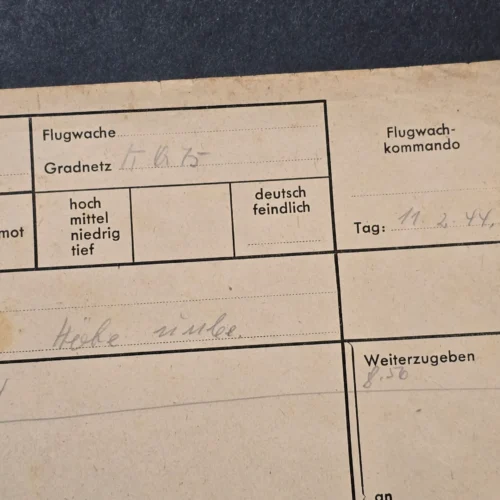 Flugwache
Gradnetz
Flugwach-
kommando
mot
hoch
mittel
niedrig
tief
deutsch
feindlich
Tag: 11. 2. 44.
Höhe unbe.
Weiterzugeben
8.56
an